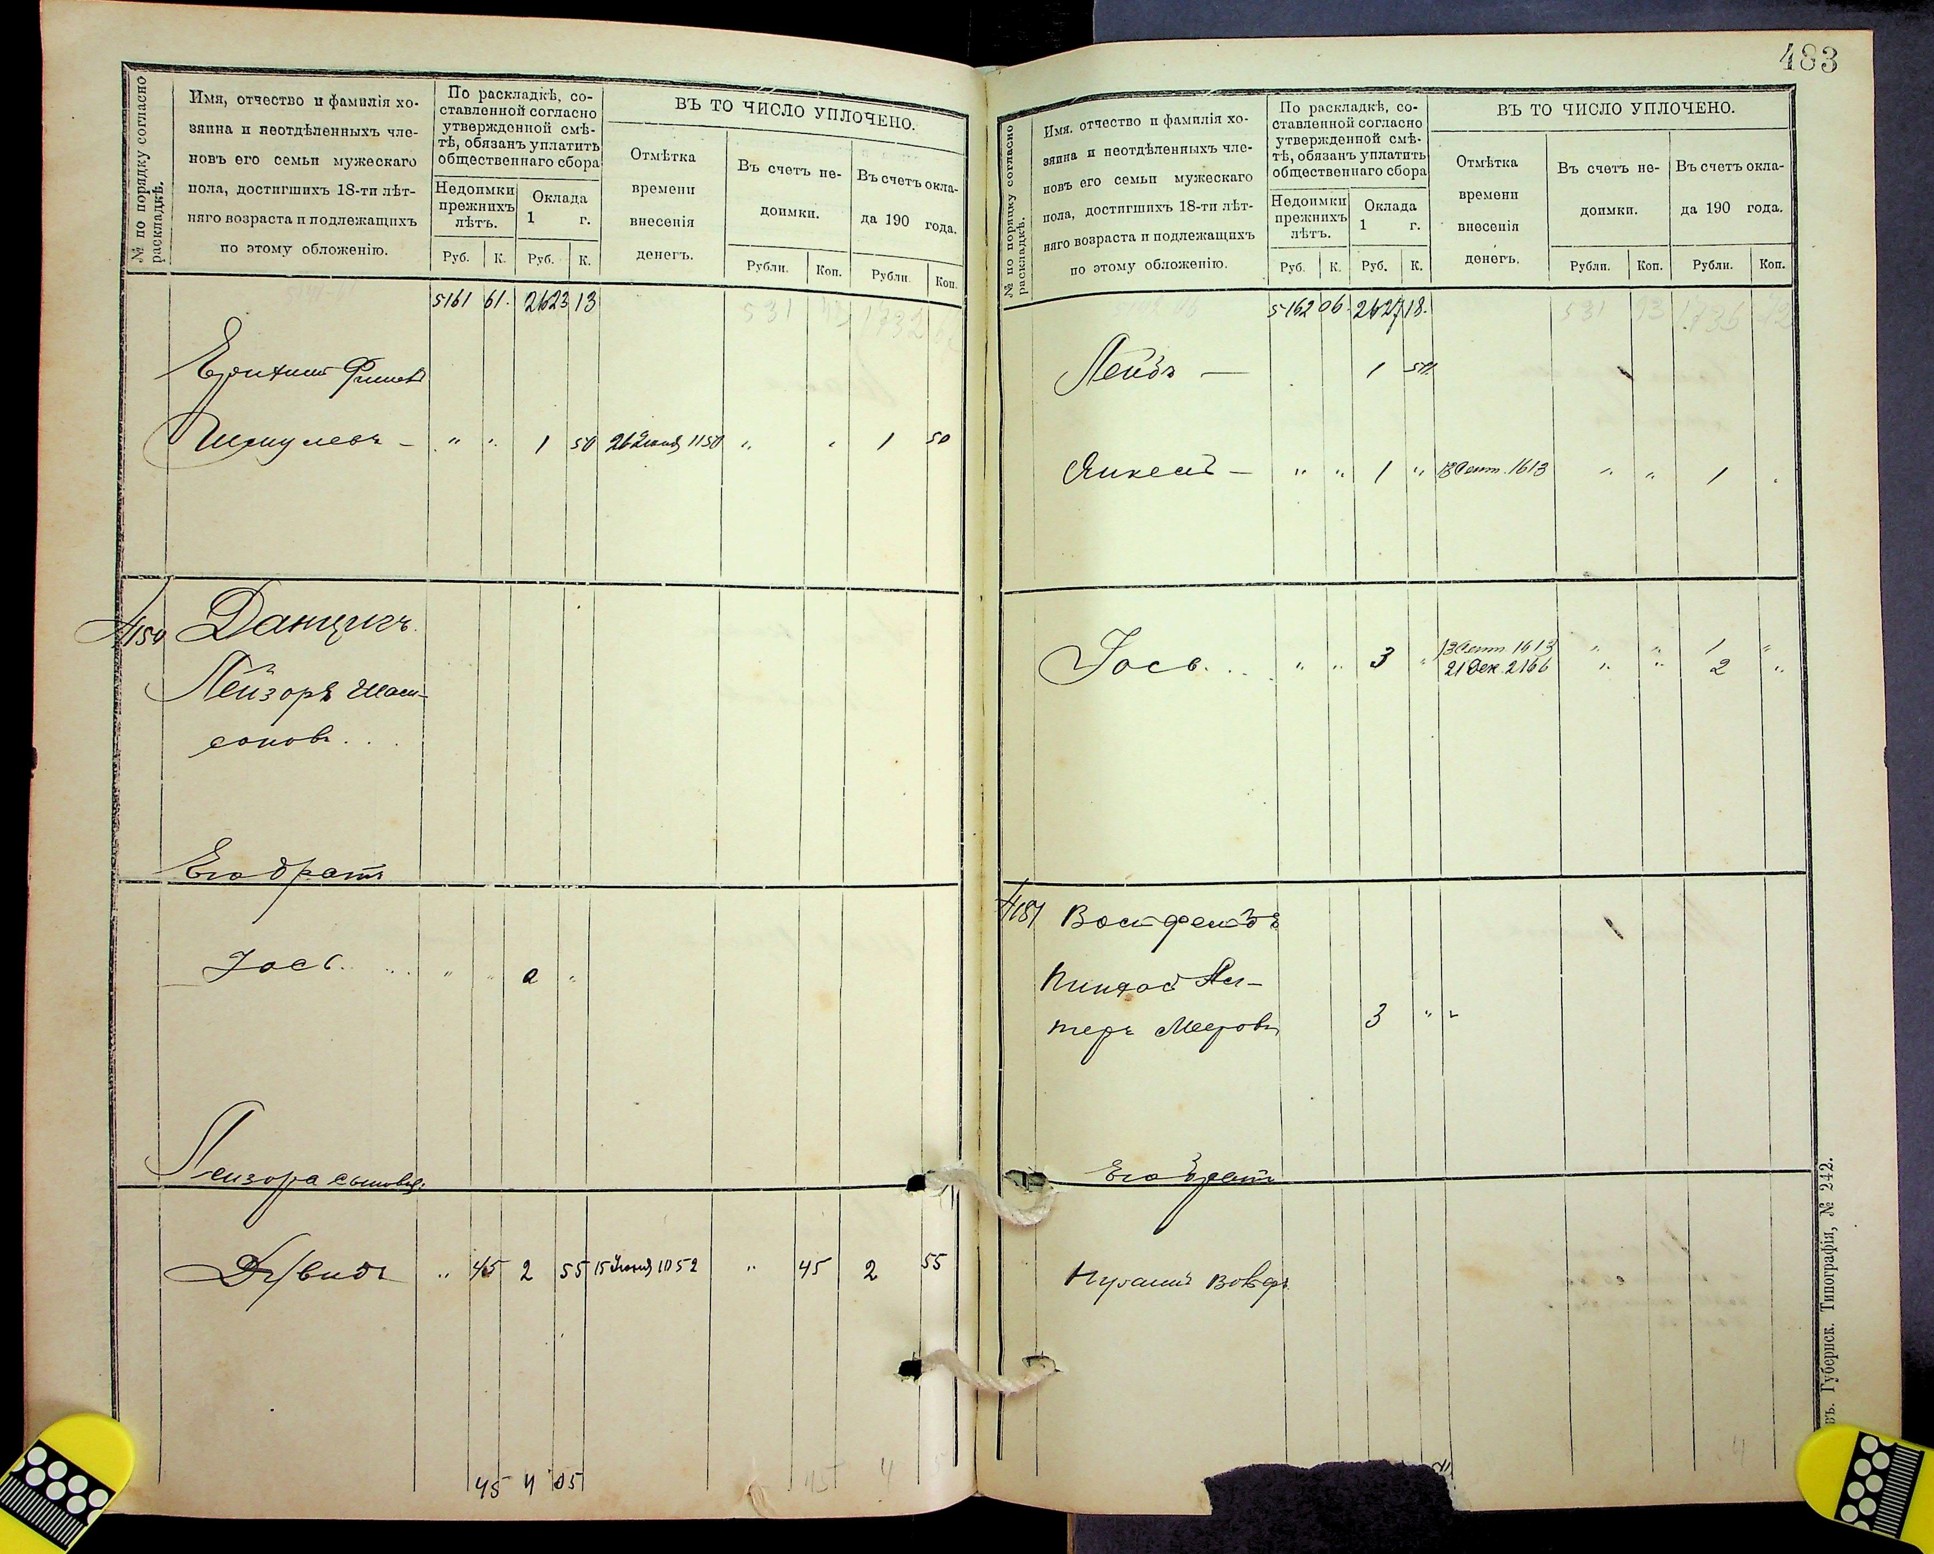 № по порядку согласно раскладкѣ.
Имя, отчество и фамилія хо-
зяина и неотдѣленныхъ чле-
новъ его семьи мужескаго
пола, достигшихъ 18-ти лѣт-
няго возраста и подлежащихъ
по этому обложенію.
По раскладкѣ, со-
ставленной согласно
утвержденной смѣ-
тѣ, обязанъ уплатить
общественнаго сбора
Недоимки
прежнихъ
лѣтъ.
Оклада
1 г.
Руб. К. Руб. К.
ВЪ ТО ЧИСЛО УПЛОЧЕНО.
Отмѣтка
времени
внесенія
денегъ.
Въ счетъ не-
доимки.
Рубли. Коп.
Въ счетъ окла-
да 190 года.
Рубли. Коп.
5161 61. 2623 13
531 1732
Шмулевъ – " " 1 50 26 Іюня 1150 " " 1 50
4150 Данцигъ.
Лейзоръ Шам-
соновъ . . .
Его братъ
Іось . . . " " " "
Лейзора сыновья:
Дувидъ " 45 2 55 15 Іюня 1052 " 45 2 55
45 4 05
45 4
483
№ по порядку согласно раскладкѣ.
Имя, отчество и фамилія хо-
зяина и неотдѣленныхъ чле-
новъ его семьи мужескаго
пола, достигшихъ 18-ти лѣт-
няго возраста и подлежащихъ
по этому обложенію.
По раскладкѣ, со-
ставленной согласно
утвержденной смѣ-
тѣ, обязанъ уплатить
общественнаго сбора
Недоимки
прежнихъ
лѣтъ.
Оклада
1 г.
Руб. К. Руб. К.
ВЪ ТО ЧИСЛО УПЛОЧЕНО.
Отмѣтка
времени
внесенія
денегъ.
Въ счетъ не-
доимки.
Рубли. Коп.
Въ счетъ окла-
да 190 года.
Рубли. Коп.
5162 06. 2627 18.
531 93 1736 12
Лейбъ – 1 50
Янкель – " " 1 " 13 Сент. 1613 " " 1
Іось . . . " " 3 " 13 Сент. 1613 " " 1 "
21 Дек. 2166 " " 2 "
4151
Пинхос Аль-
теръ Меровъ 3 " "
Его братъ
въ. Губернск. Типографія, № 242.